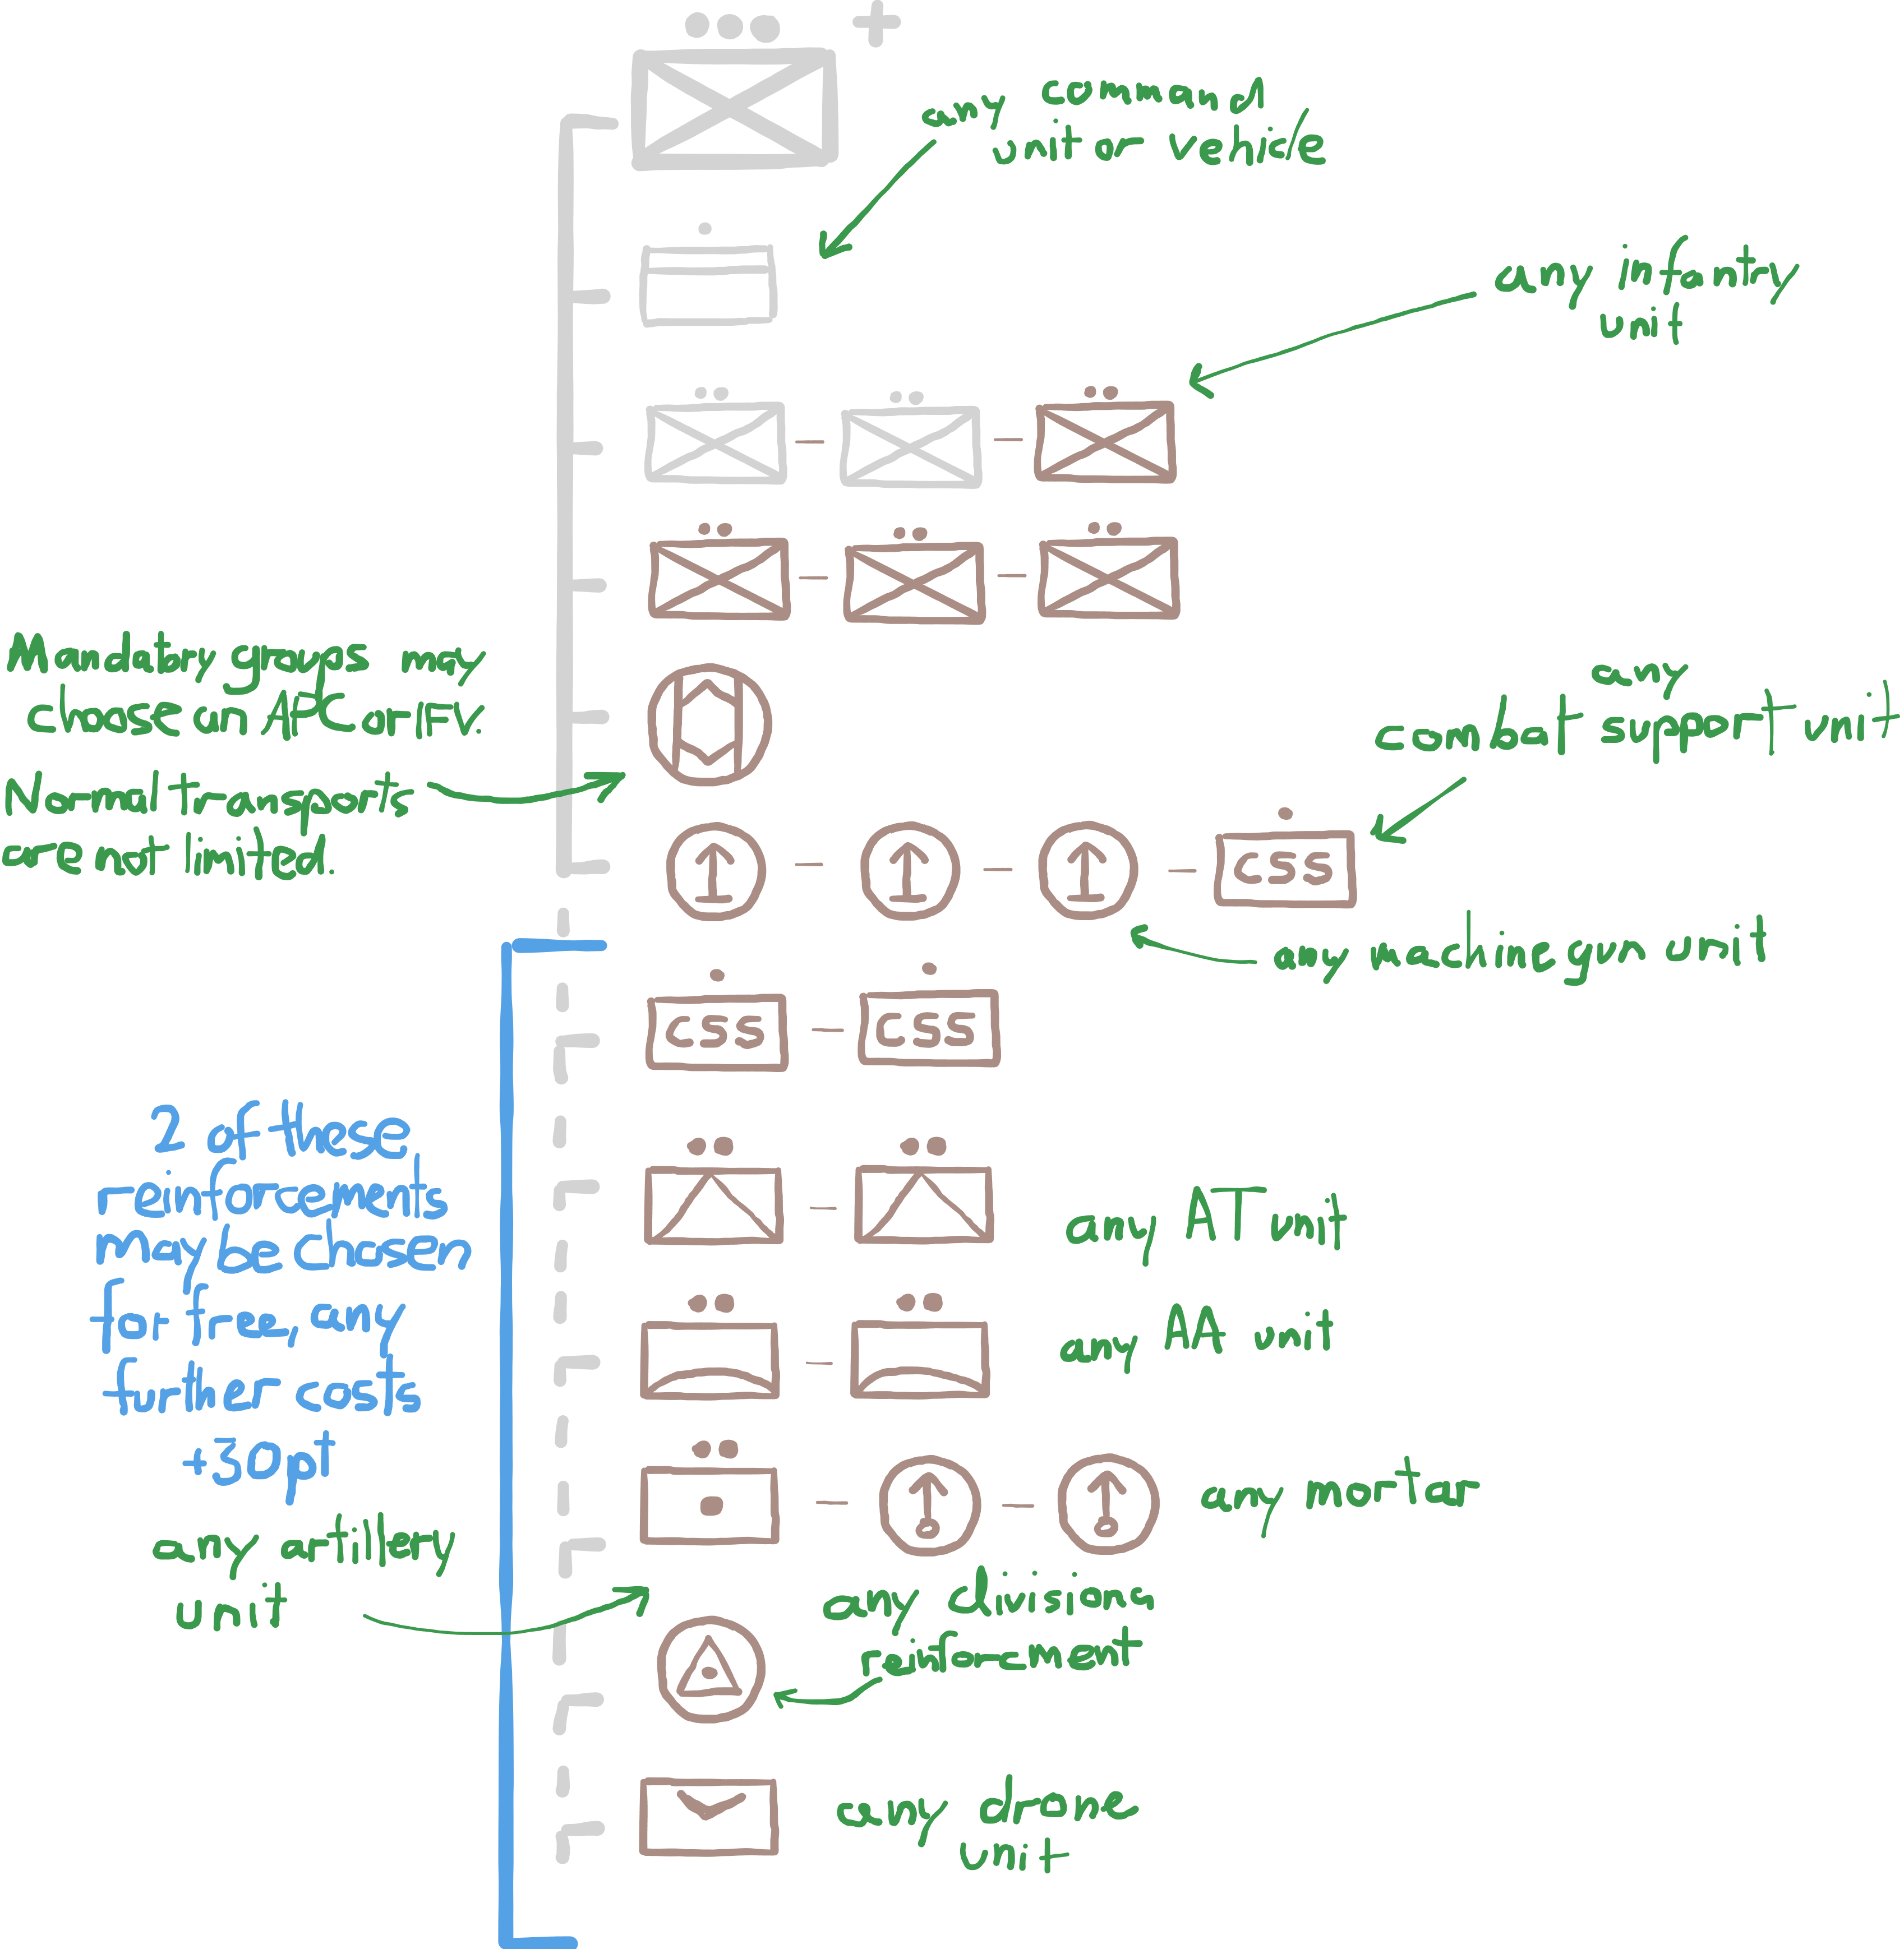 any command
unit or vehicle
any infantry
unit
Mandatory groups may
chose an APC or IFV.
Normal transports
are not limited.
any
combat support unit
CSS
any machine gun unit
CSS
CSS
2 of these
reinforcements
may be chosen
for free, any
further costs
+30pt
any AT unit
any AA unit
any mortar
any artillery
unit
any divisions
reinforcement
any drone
unit